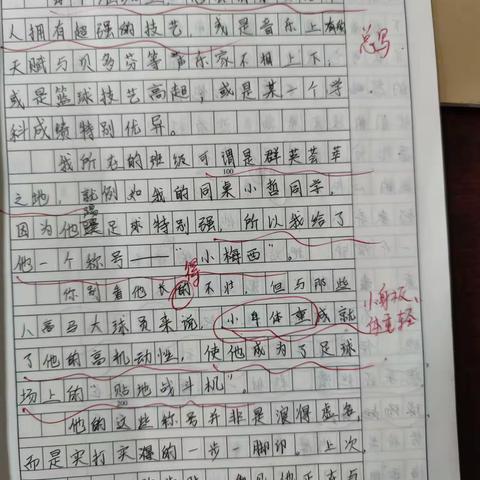 人拥有超强的技艺,或是音乐上有的
总写
天赋与贝多芬等音乐家不相上下,
或是篮球技艺高超,或是某一个学
科成绩特别优异。
我所在的班级可谓是群英荟萃
100
之地,就例如我的同桌小哲同学,
因为他踢足球特别强,所以我给了
他一个称号——“小梅西”。
得
你别看他长的不壮,但与那些
人高马大球员来说,小年体重成就
小身板、
体重轻
了他的高机动性,使他成为了足球
场上的“贴地战斗机”。
200
他的这些称号并非是浪得虚名,
而是实打实踢的一步一脚印。上次,